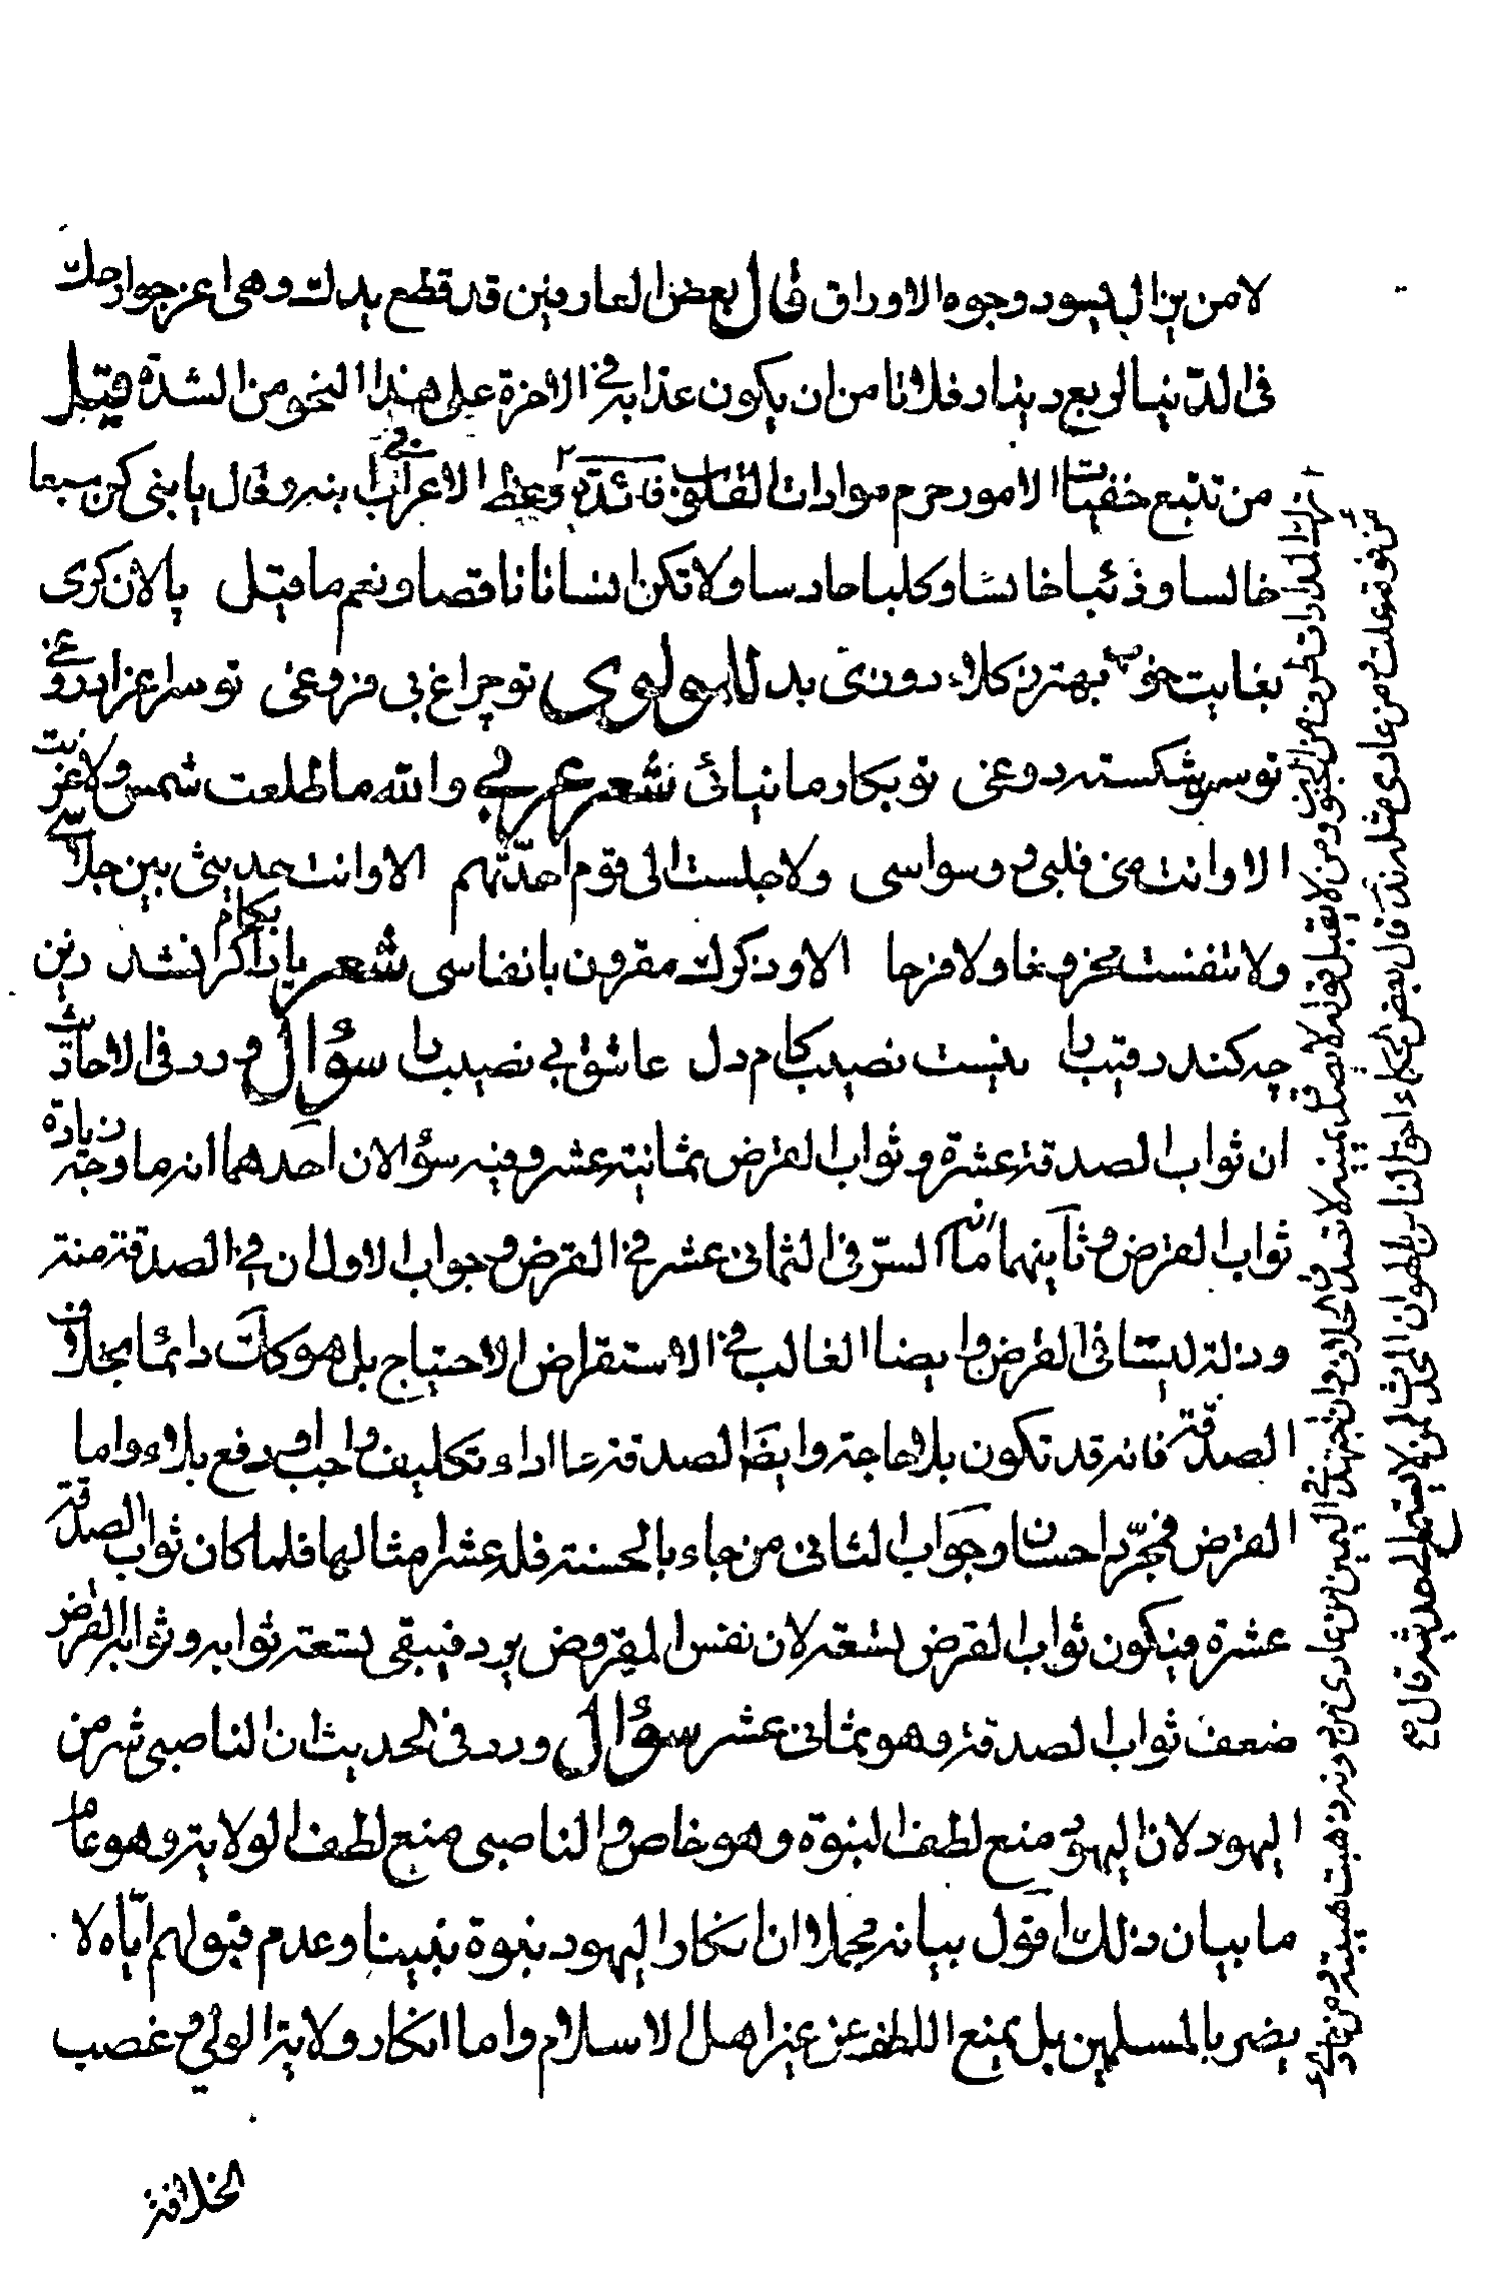 لا من يزال يسود وجوه الاوراق قال بعض العارفين قد قطع يدك وهى اعز جوارحك
فى الدنيا لربع دينار فلا تا من ان يكون عذابه فى الاخرة على هذا النحو من الشدة قيل
من تتبع خفيات الامور حرم موادات القلوب فائدة وعظ الاعرابى بنيه وقال يا بنى كن سبعا
خالسا وذئبا خانسا وكلبا حارسا ولا تكن انسانا ناقصا ونعم ما قيل پالان كرى
بغايت خود بهتر ز كلاه دوزى بد لاسولوى تو چراغ بى فروغى تو سراغ از دروغى
تو سر شكسته دوغى تو بكار ما نيائى شعر عربى والله ما طلعت شمس ولا غربت
الا وانت منى قلبى ووسواسى ولا جلست الى قوم احدثهم الا وانت حديثى بين جلاسى
ولا تنفست محزونا ولا فرحا الا وذكرك مقرون بانفاسى شعر يار اكر نشد بكام زين
چه كند رقيب را نيست نصيب كام دل عاشق بى نصيب را سؤال ورد فى الاحاديث
ان ثواب الصدقة عشرة وثواب القرض ثمانية عشر وفيه سؤالان احدهما انه ما وجه زيادة
ثواب القرض وثانيهما انه ما السر فى الثمانى عشر فى القرض وجواب الاول ان فى الصدقة منة
وذلة ليستا فى القرض وايضا الغالب فى الاستقراض الاحتياج بل هو كك دائما بخلاف
الصدقة فانه قد تكون بلا حاجة وايضا الصدقة اداء تكليف واجب او دفع بلاء واما
القرض فمجرد احسان وجواب الثانى من جاء بالحسنة فله عشر امثالها فلما كان ثواب الصدقة
عشرة فيكون ثواب القرض تسعة لان نفس المقروض يرد فيبقى تسعة ثوابه وثواب القرض
ضعف ثواب الصدقة وهو ثمانى عشر سؤال ورد فى الحديث ان الناصبى شر من
اليهود لان اليهود منع لطف النبوة وهو خاص والناصبى منع لطف الولاية وهو عام
ما بيان ذلك اقول بيانه مجملا ان انكار اليهود نبوة نبينا وعدم قبولهم اياه لا
يضر بالمسلمين بل يمنع اللطف عن غير اهل الاسلام واما انكار ولاية الولى وغصب
الخلافة
ومن لا يقبل قوله لا تصدق يمينه لا تعد الخلاف وان تجتهد فى اليمين من عادى من دونه ذهبت هيبته ومن عادى
من فوقه غلب ومن عادى مثله ندم قال بعض الحكماء احق الناس بالهوان المحدث لمن لا يستمع الى حديثه قال